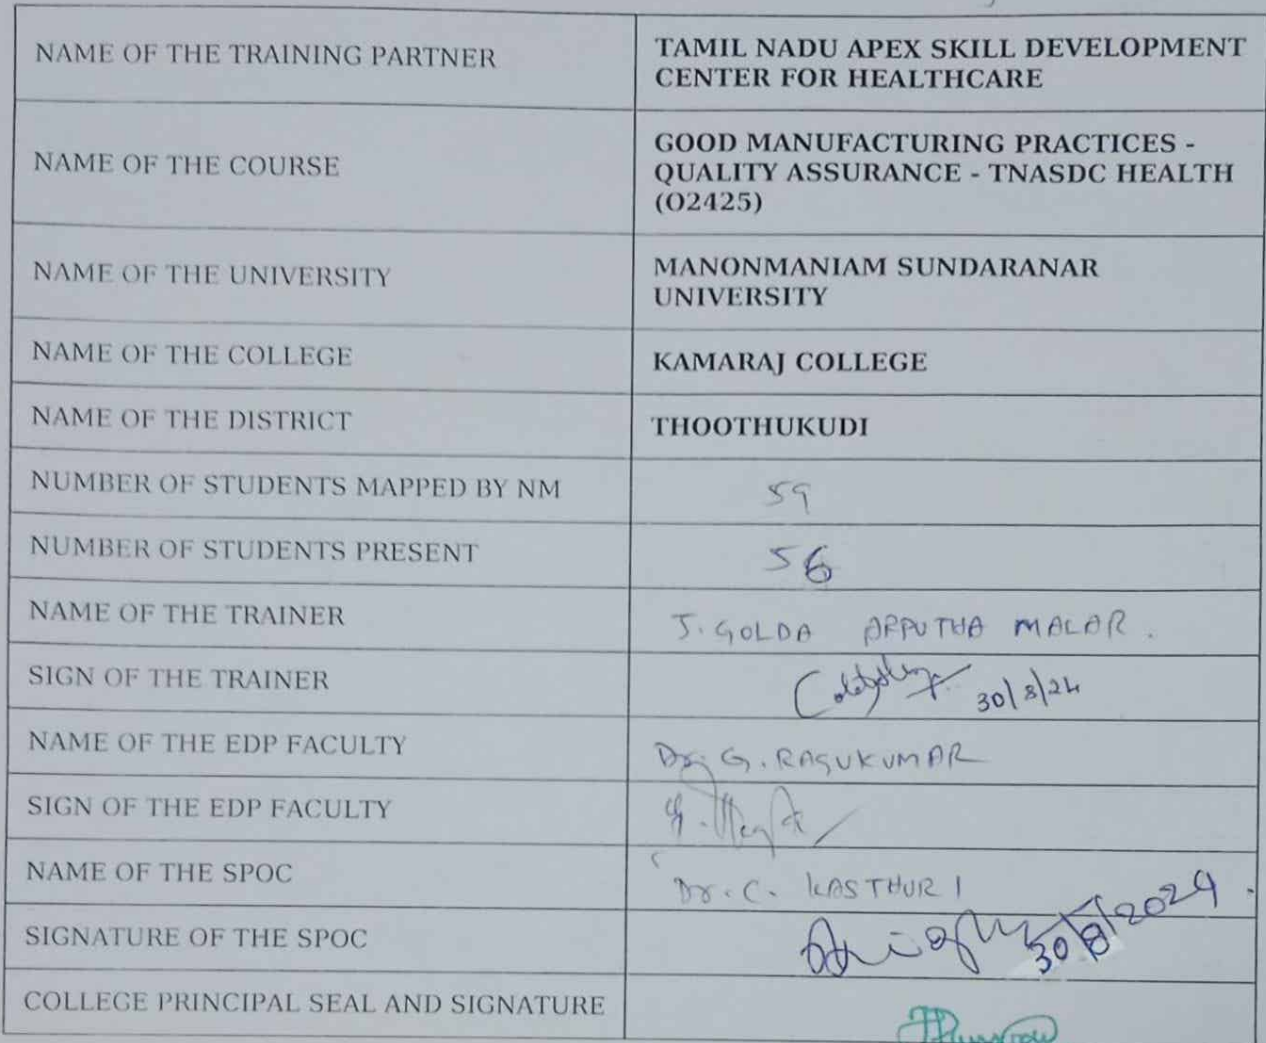 NAME OF THE TRAINING PARTNER
TAMIL NADU APEX SKILL DEVELOPMENT
CENTER FOR HEALTHCARE
NAME OF THE COURSE
GOOD MANUFACTURING PRACTICES -
QUALITY ASSURANCE - TNASDC HEALTH
(O2425)
NAME OF THE UNIVERSITY
MANONMANIAM SUNDARANAR
UNIVERSITY
NAME OF THE COLLEGE
KAMARAJ COLLEGE
NAME OF THE DISTRICT
THOOTHUKUDI
NUMBER OF STUDENTS MAPPED BY NM
59
NUMBER OF STUDENTS PRESENT
56
NAME OF THE TRAINER
J. GOLDA ARPUTHA MALAR.
SIGN OF THE TRAINER
30/8/24
NAME OF THE EDP FACULTY
Dr. G. RAGUKUMAR
SIGN OF THE EDP FACULTY
NAME OF THE SPOC
Dr. C. KASTHURI
SIGNATURE OF THE SPOC
30/8/2024.
COLLEGE PRINCIPAL SEAL AND SIGNATURE